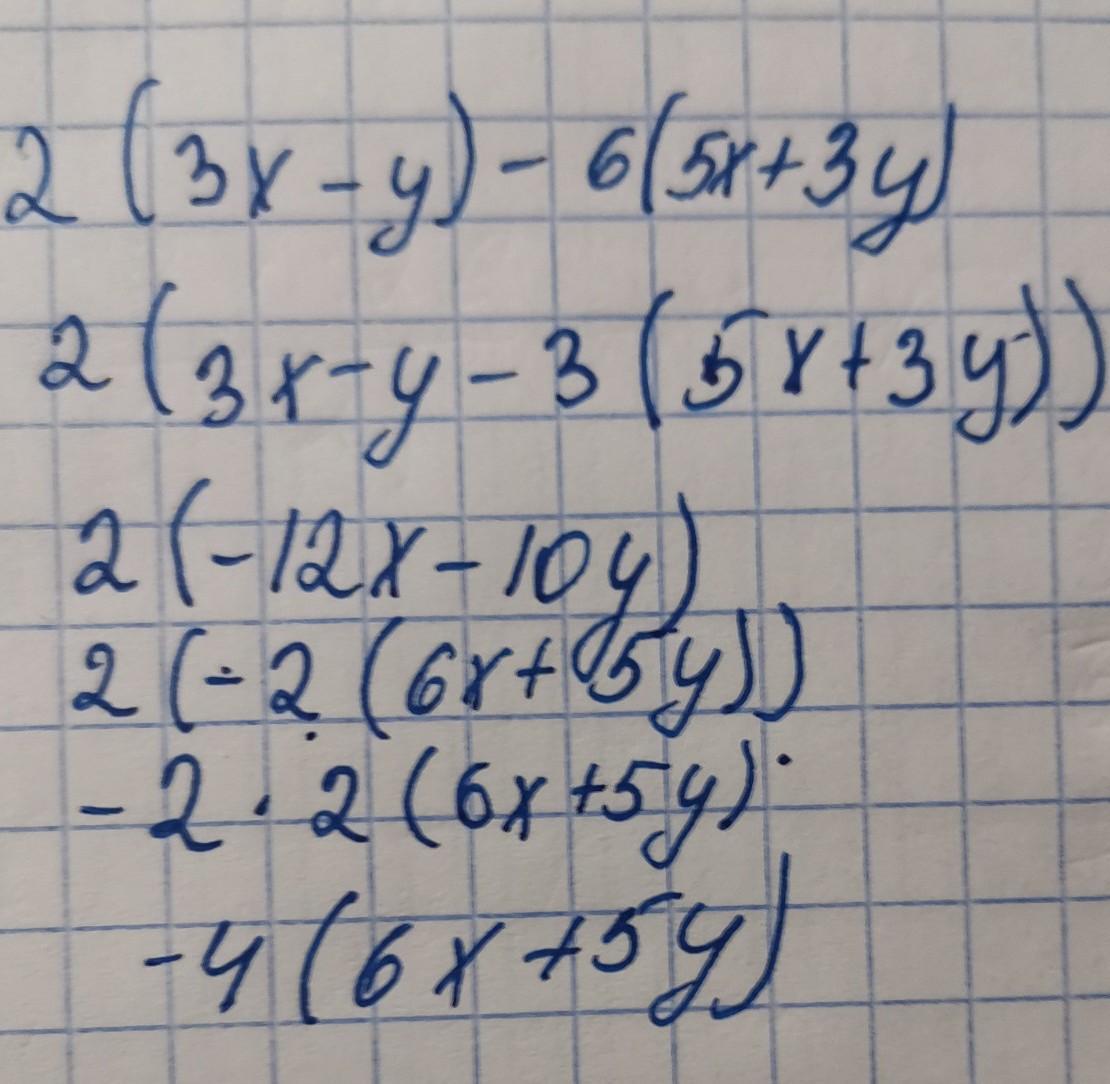 2(3x-y)-6(5x+3y)
2(3x-y-3(5x+3y))
2(-12x-10y)
2(-2(6x+5y))
-2·2(6x+5y)
-4(6x+5y)